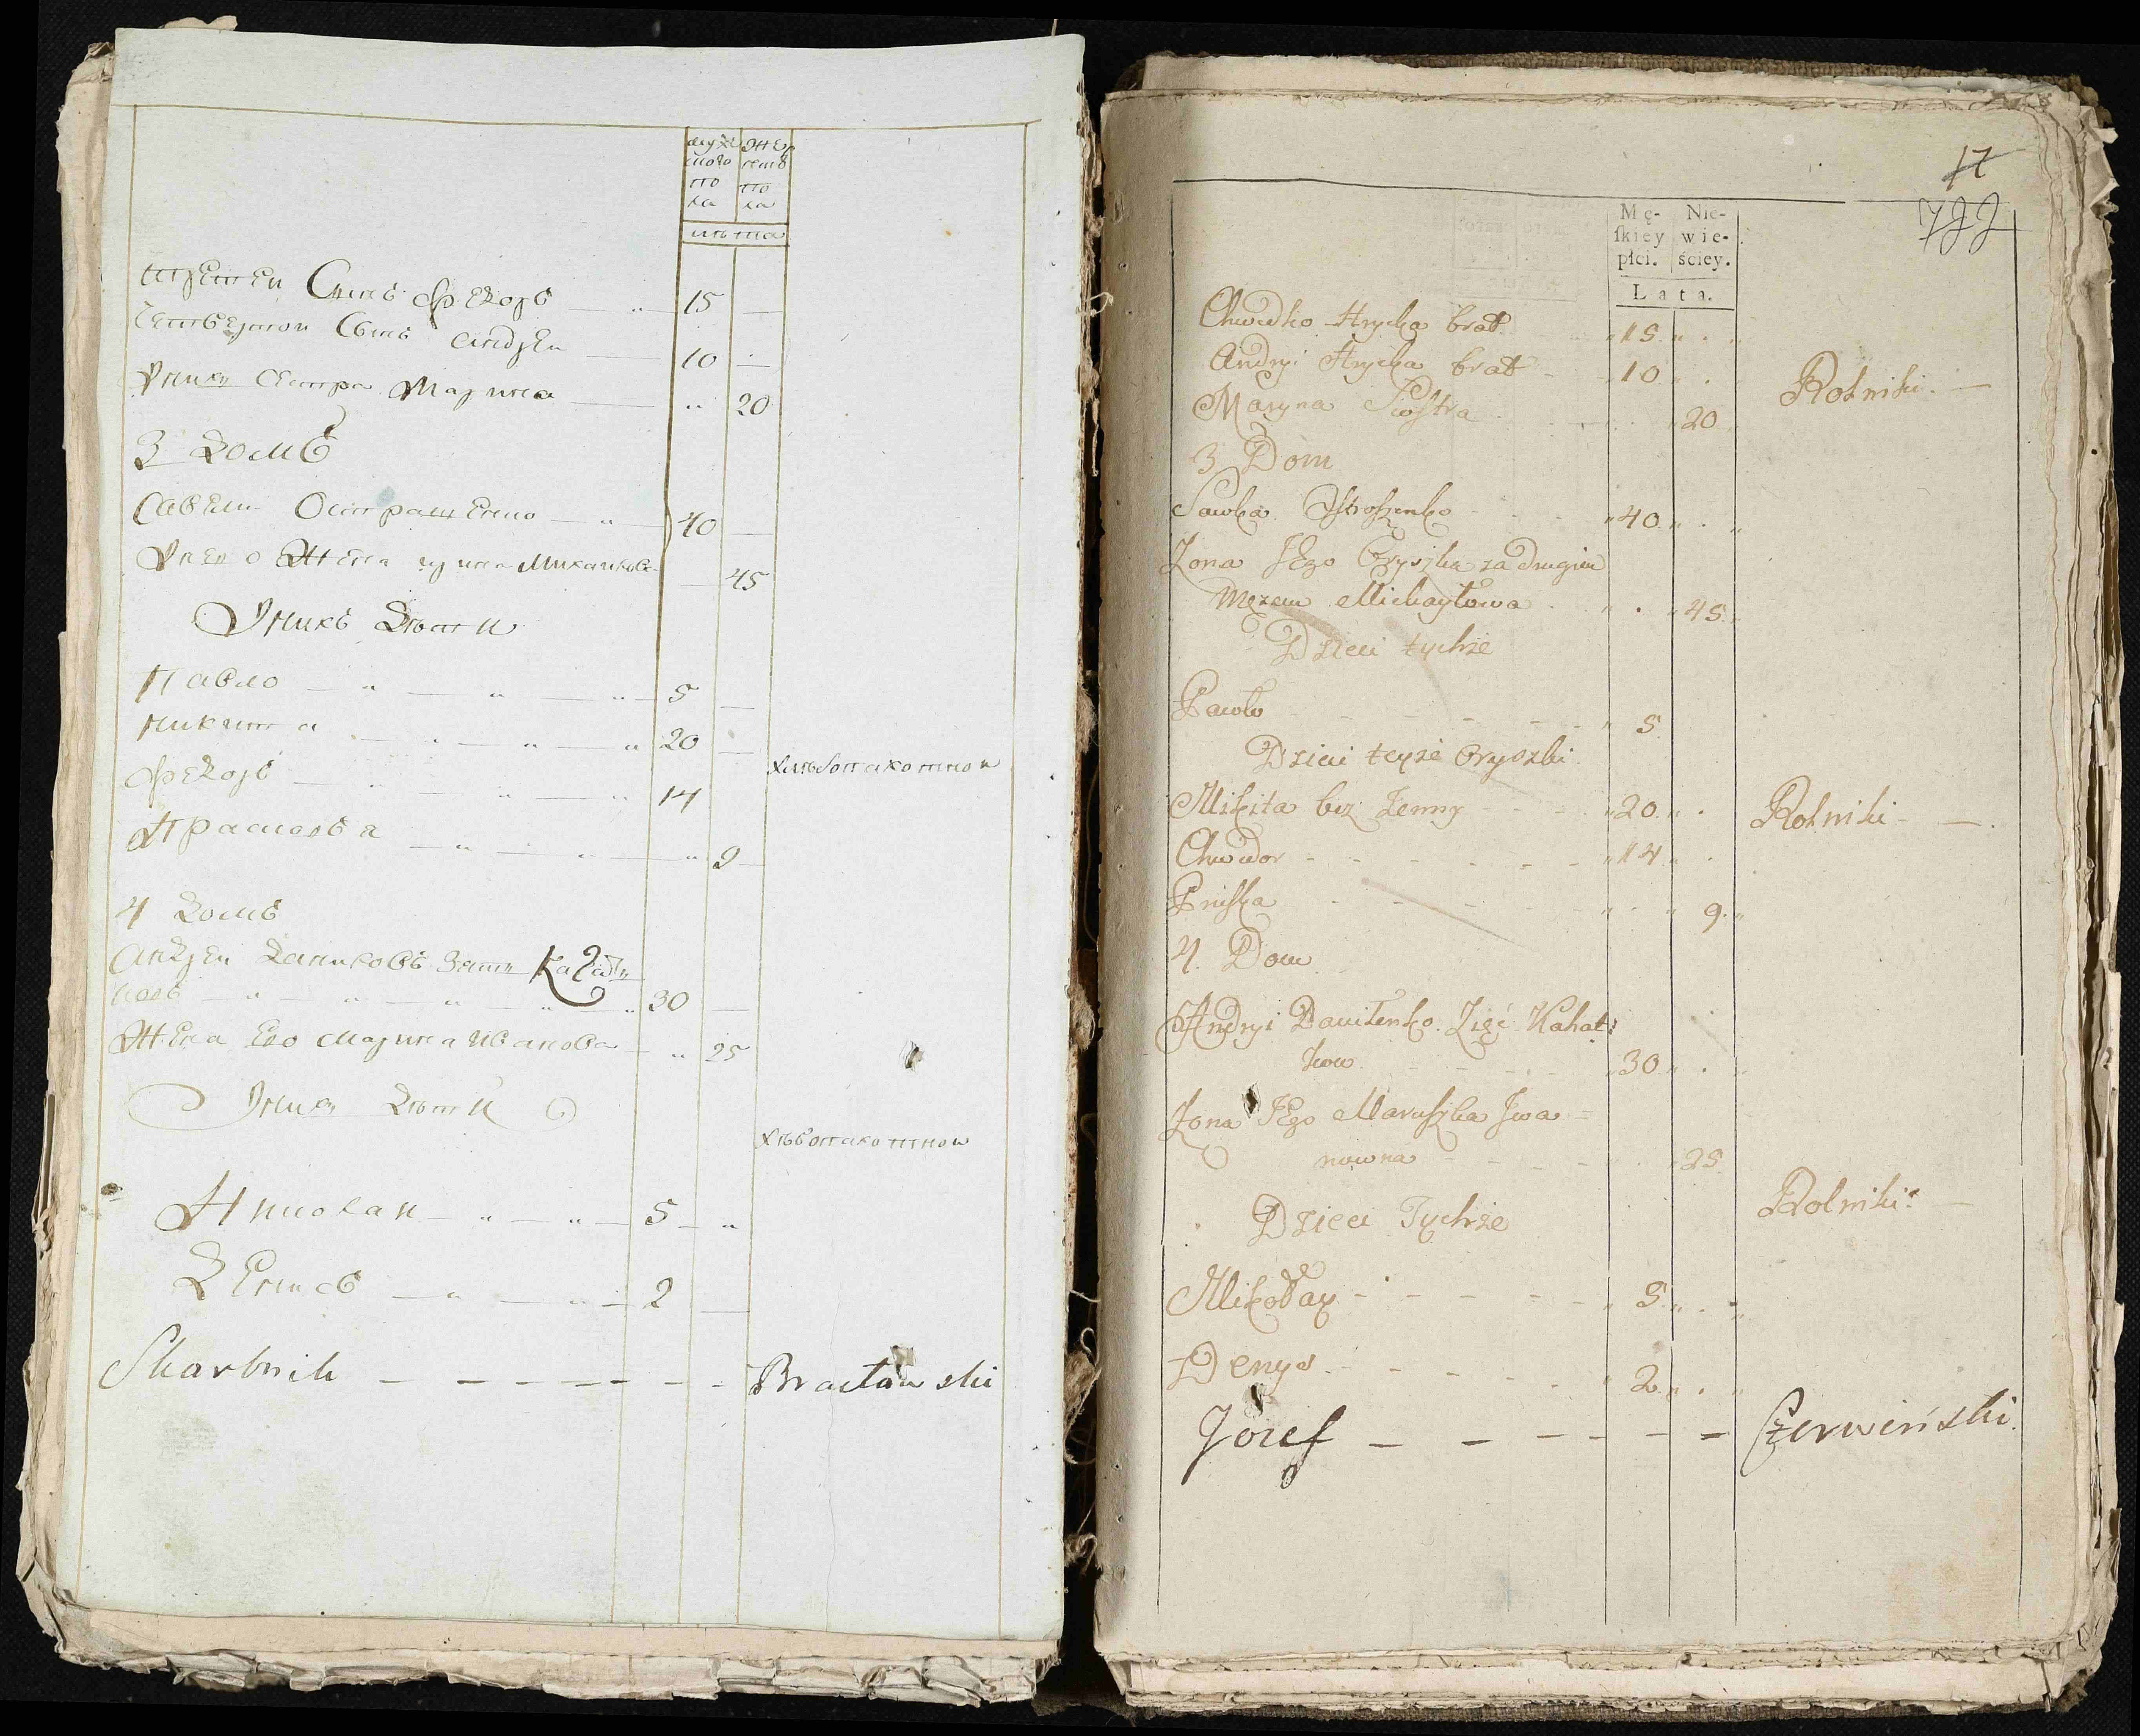 мужеска
го
по
ла
женска
го
по
ла
лѣта
третей Сынъ Федоръ 15
Четвертой Сынъ андрей 10
Уних Сестра Марина 20
3 домъ
Савели Остращенко 40
Унего Жена ирина Михайлова 45
Унихъ Дѣти
Павло 5
никита 20
Федоръ 14
хлѣбопакотной
Прасковя 9
4 домъ
андрей даниловъ зять Кагат
ковъ 30
Жена Его марина Иванова 25
Уних Дѣти
хлѣбопакотной
Николай 5
Денисъ 2
Skarbnik Bracławski
17
722
Mę-
ſkiey
płci.
Nie-
wie-
ściey.
Lata.
Chwedko Hrycka brat 15
Andryi Hrycka brat 10
Rolniki
Maryna Siostra 20
3 Dom
Sawka Ostroszenko 40
Zona JEgo Oryszka za drugim
Mężem Michayłowa 45
Dzieci tychże
Pawło 5
Dzieci teyże Oryszki
Mikita bez Żenny 20
Rolniki
Chwedor 14
Pryśka 9
4. Dom
Andryi Daniłenko Zięć Kahat
kow 30
Zona JEgo Maruszka Jwa
nowna 25
Dzieci Tychże
Rolniki
Mikołay 5
Denys 2
Józef Czerwiński